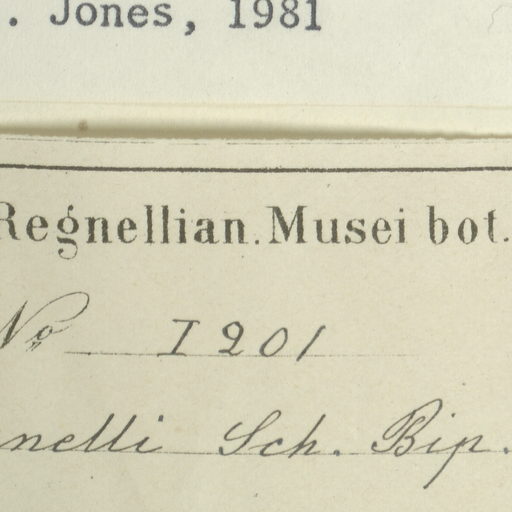 . Jones, 1981
Regnellian. Musei bot.
No I 201
nelli Sch. Bip.